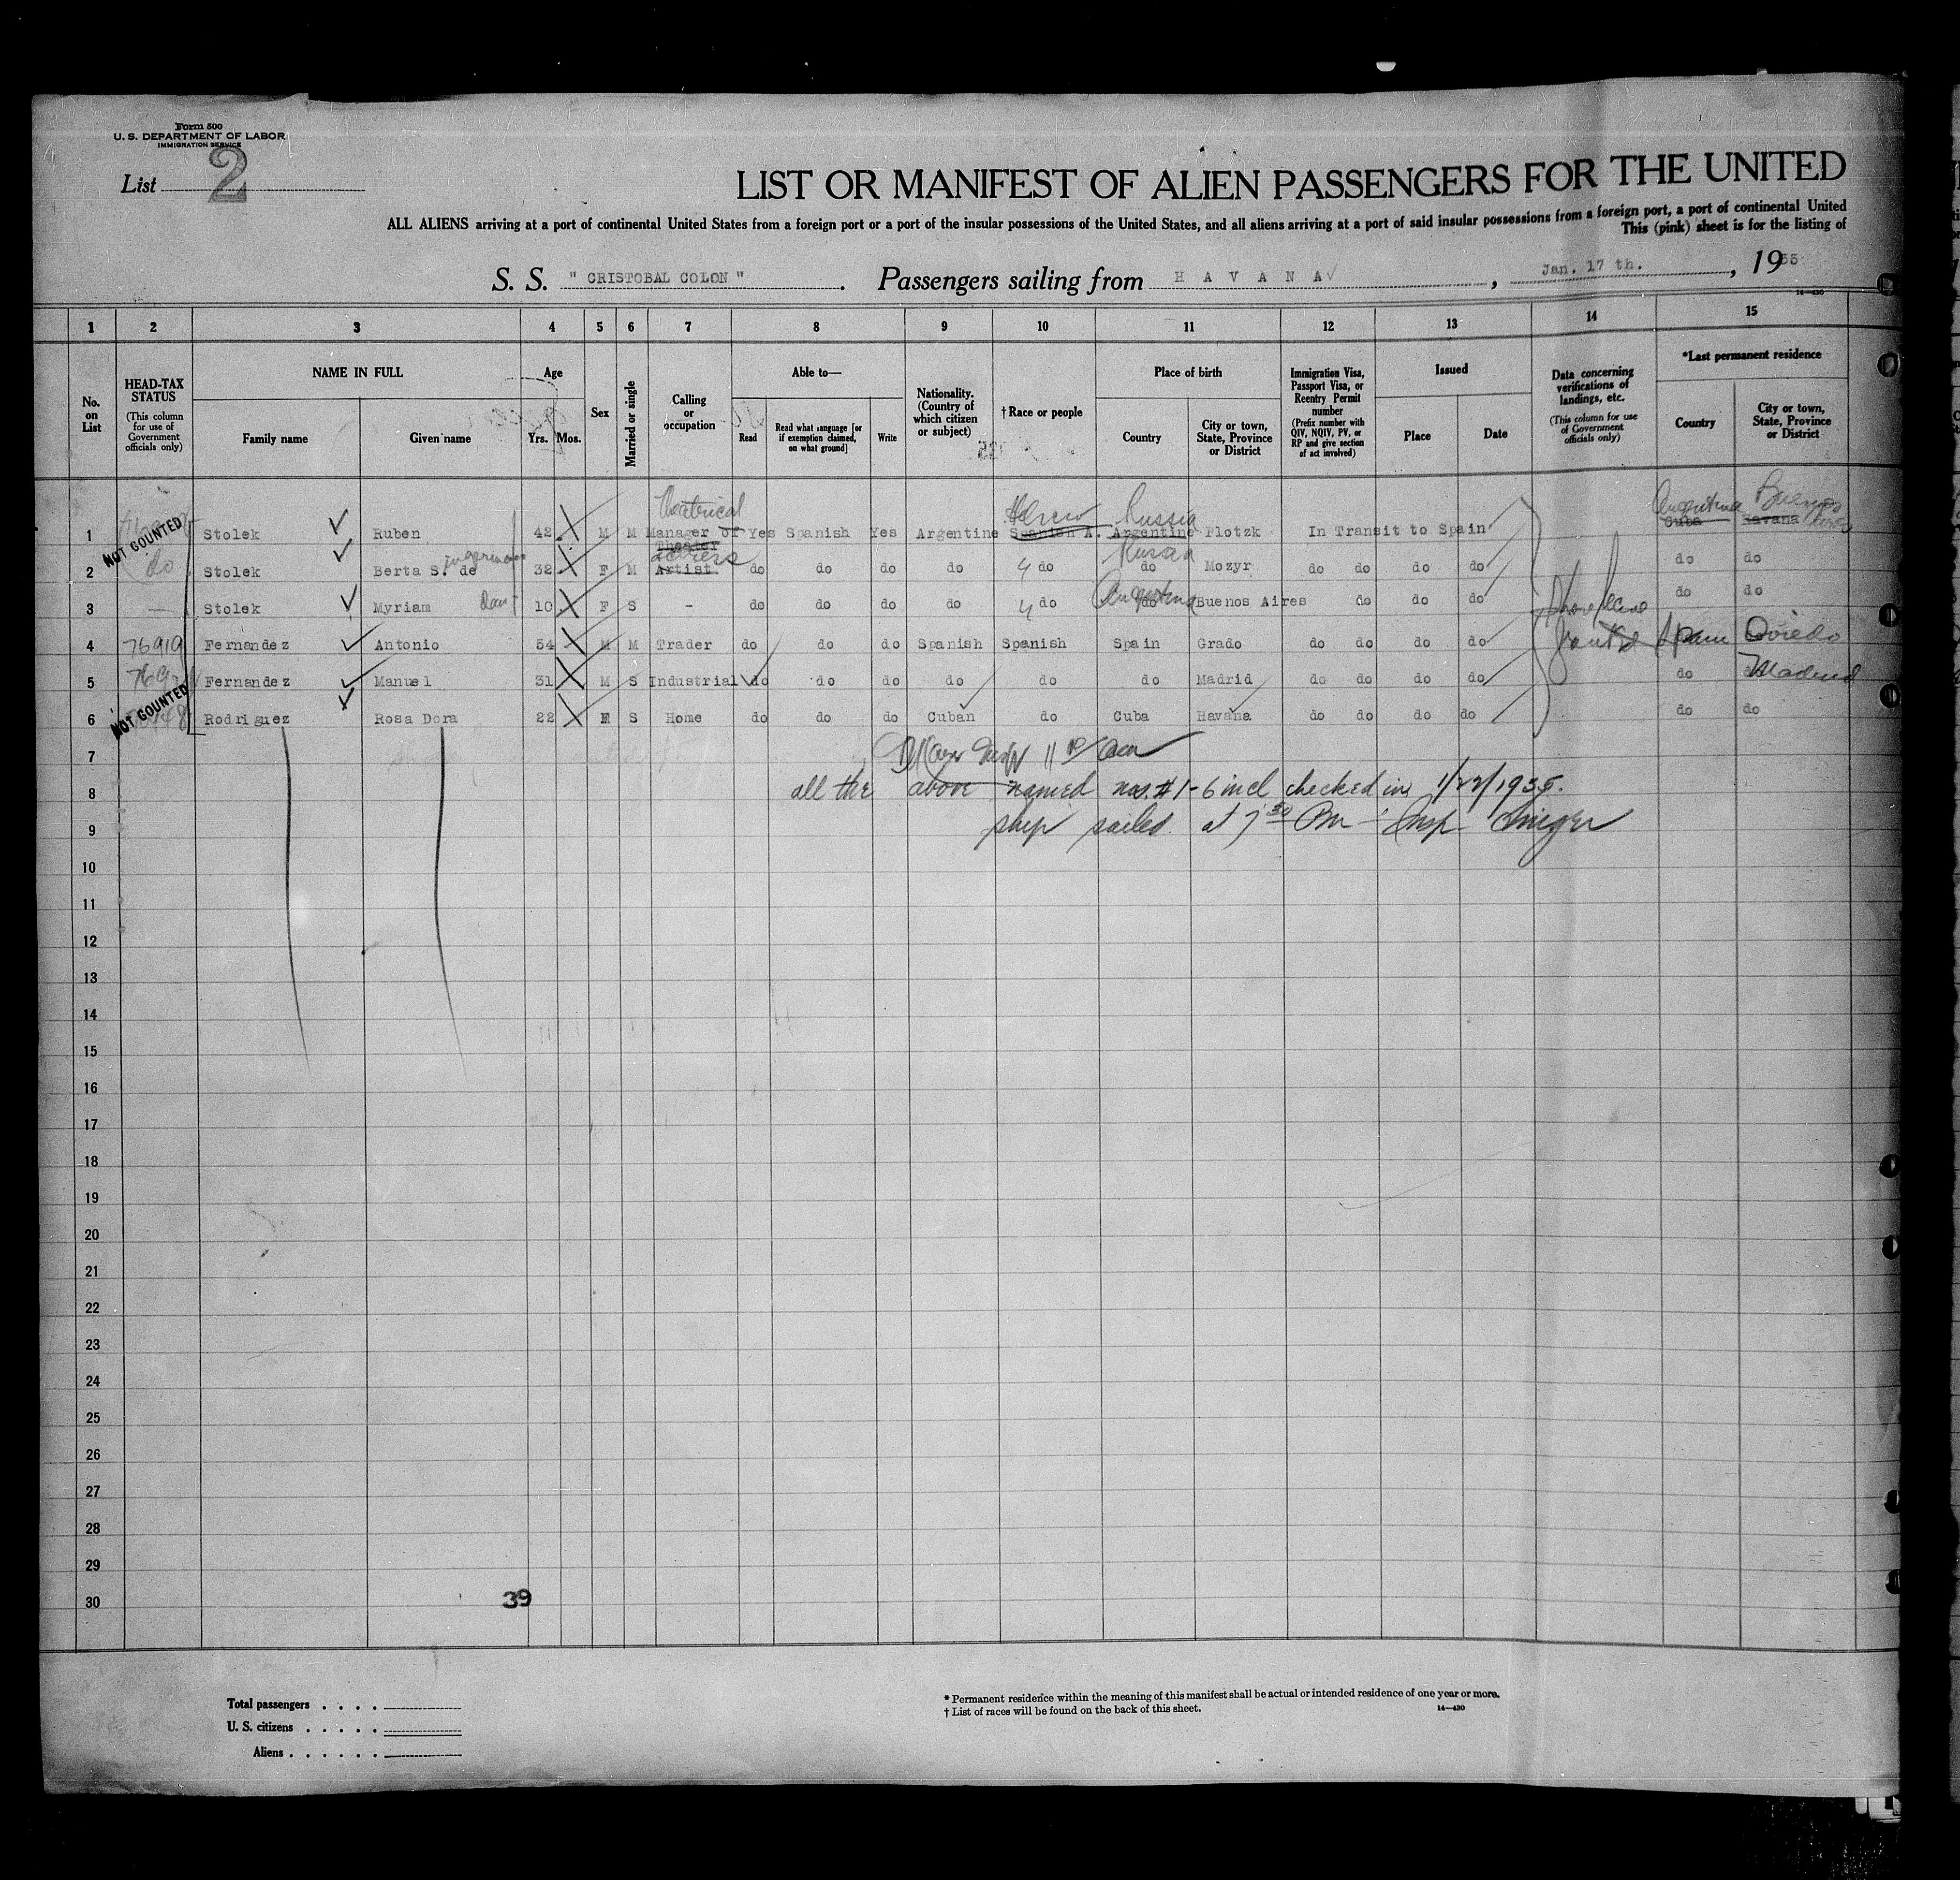 Form 500
U. S. DEPARTMENT OF LABOR
IMMIGRATION SERVICE
List 2
LIST OR MANIFEST OF ALIEN PASSENGERS FOR THE UNITED
ALL ALIENS arriving at a port of continental United States from a foreign port or a port of the insular possessions of the United States, and all aliens arriving at a port of said insular possessions from a foreign port, a port of continental United
This (pink) sheet is for the listing of
S. S. " CRISTOBAL COLON " . Passengers sailing from H A V A N A , Jan. 17 th. , 1935
14—430
1 2 3 4 5 6 7 8 9 10 11 12 13 14 15
No. on List
HEAD-TAX STATUS (This column for use of Government officials only)
NAME IN FULL Family name Given name
Age Yrs. Mos.
Sex
Married or single
Calling or occupation
Able to— Read Read what language [or if exemption claimed, on what ground] Write
Nationality. (Country of which citizen or subject)
† Race or people
Place of birth Country City or town, State, Province or District
Immigration Visa, Passport Visa, or Reentry Permit number (Prefix number with QIV, NQIV, PV, or RP and give section of act involved)
Issued Place Date
Data concerning verifications of landings, etc. (This column for use of Government officials only)
*Last permanent residence Country City or town, State, Province or District
Theatrical Hebrew Russia Argentina Buenos Aires
1 NOT COUNTED Stolek Ruben 42 M M Manager of Theater Yes Spanish Yes Argentine Spanish A. Argentine Plotzk In Transit to Spain Cuba Havana
actress Russia
2 do Stolek Berta S. de 32 F M Artist do do do do do do Mozyr do do do do do do
3 — Stolek Myriam 10 F S - do do do do do do Argentina Buenos Aires do do do do do
4 76919 Fernandez Antonio 54 M M Trader do do do Spanish Spanish Spain Grado do do do do Spain Oviedo
5 Fernandez Manuel 31 M S Industrial do do do do do do Madrid do do do do do do Madrid
6 NOT COUNTED Rodriguez Rosa Dora 22 F S Home do do do Cuban do Cuba Havana do do do do do do
7
8 all the above named nos. #1-6 incl checked in 1/22/1935.
9 ship sailed at 7 30 Pm - Insp.
10
11
12
13
14
15
16
17
18
19
20
21
22
23
24
25
26
27
28
29
30
39
Total passengers . . . .
U. S. citizens . . . . .
Aliens . . . . . .
* Permanent residence within the meaning of this manifest shall be actual or intended residence of one year or more.
† List of races will be found on the back of this sheet.
14—430